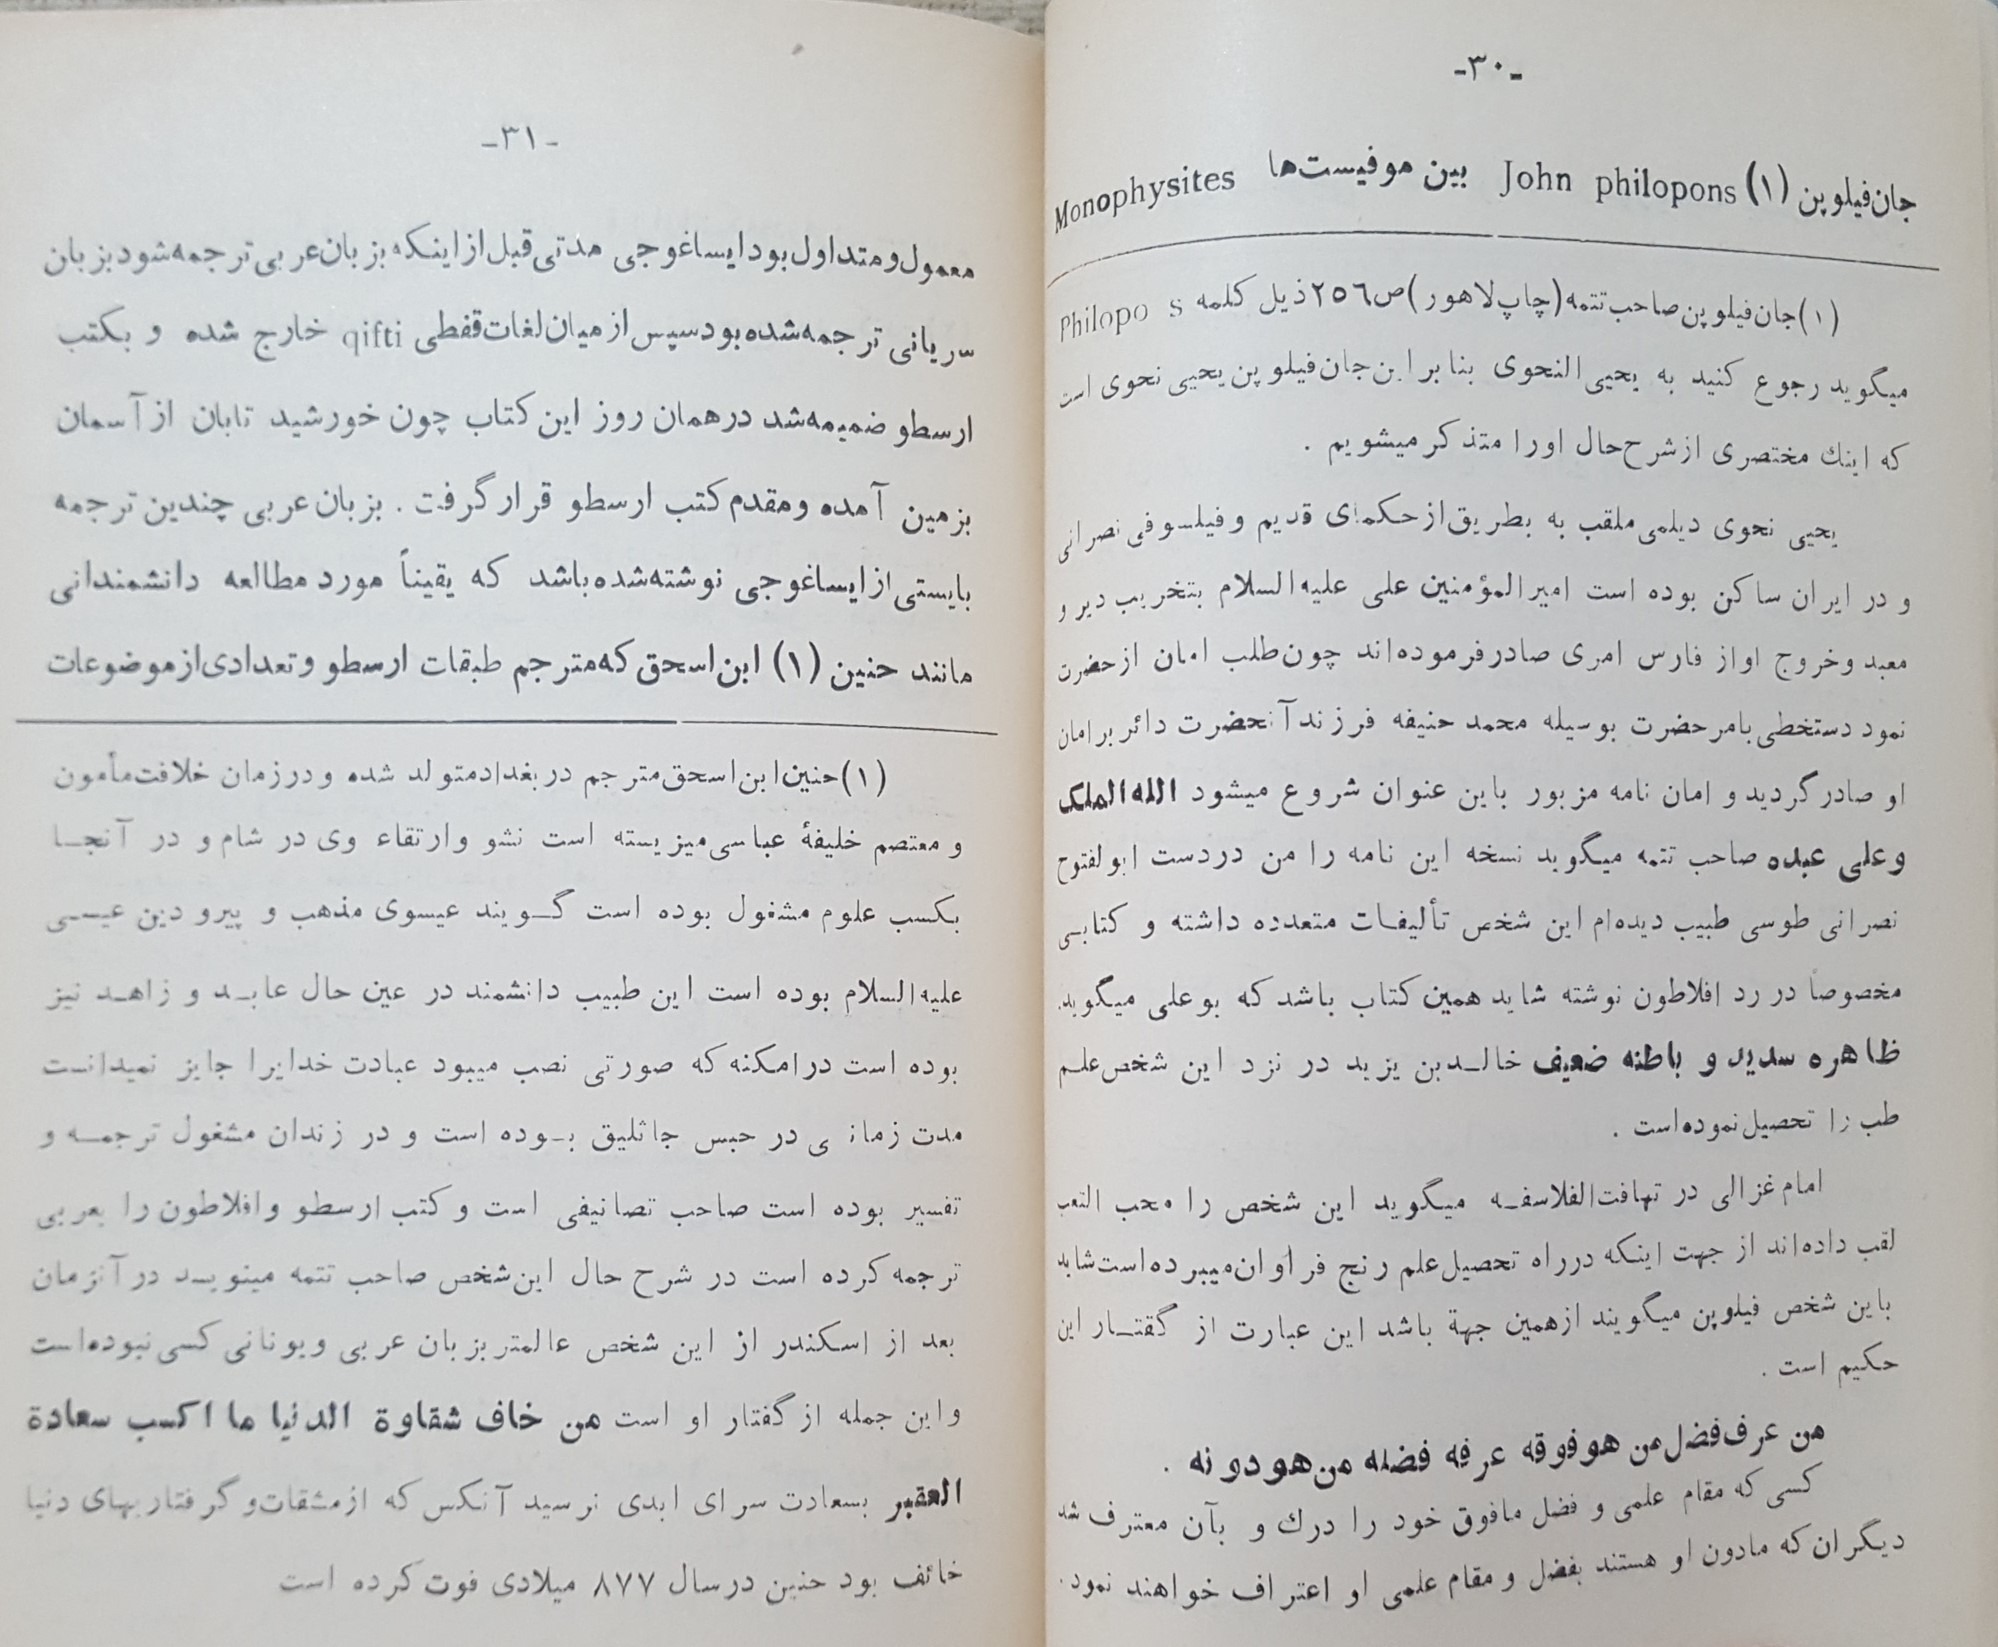 -۳۰-
جان‌فیلوپن (۱) John philopons بین موفیست‌ها Monophysites
(۱) جان‌فیلوپن صاحب تتمه (چاپ لاهور) ص ۲۵۶ ذیل کلمه Philopo s
میگوید رجوع کنید به یحیی النحوی بنا بر این جان فیلوپن یحیی نحوی است
که اینك مختصری از شرح حال اورا متذکر میشویم .
یحیی نحوی دیلمی ملقب به بطریق از حکمای قدیم و فیلسوفی نصرانی
و در ایران ساکن بوده است امیرالمؤمنین علی علیه‌السلام بتخریب دیر و
معبد و خروج او از فارس امری صادر فرموده‌اند چون طلب امان از حضرت
نمود دستخطی بامر حضرت بوسیله محمد حنیفه فرزند آنحضرت دائر بر امان
او صادر گردید و امان نامه مزبور باین عنوان شروع میشود الله‌الملك
و علی عبده صاحب تتمه میگوید نسخه این نامه را من دردست ابولفتوح
نصرانی طوسی طبیب دیده‌ام این شخص تألیفات متعدده داشته و کتابی
مخصوصاً در رد افلاطون نوشته شاید همین کتاب باشد که بوعلی میگوید.
ظاهره سدید و باطنه ضعیف خالد بن یزید در نزد این شخص علم
طب را تحصیل نموده‌است .
امام غزالی در تهافت‌الفلاسفه میگوید این شخص را محب التعب
لقب داده‌اند از جهت اینکه درراه تحصیل علم رنج فراوان میبرده است شاید
باین شخص فیلوپن میگویند ازهمین جهة باشد این عبارت از گفتار این
حکیم است .
من عرف فضل من هوفوقه عرفه فضله من هودونه .
کسی که مقام علمی و فضل مافوق خود را درك و بآن معترف شد
دیگران که مادون او هستند بفضل و مقام علمی او اعتراف خواهند نمود.
-۳۱-
معمول و متداول بود ایساغوجی مدتی قبل از اینکه بزبان عربی ترجمه شود بزبان
سریانی ترجمه شده بود سپس از میان لغات قفطی qifti خارج شده و بکتب
ارسطو ضمیمه شد درهمان روز این کتاب چون خورشید تابان از آسمان
بزمین آمده و مقدم کتب ارسطو قرار گرفت . بزبان عربی چندین ترجمه
بایستی از ایساغوجی نوشته شده باشد که یقیناً مورد مطالعه دانشمندانی
مانند حنین (۱) ابن اسحق که مترجم طبقات ارسطو و تعدادی از موضوعات
(۱) حنین ابن اسحق مترجم در بغداد متولد شده و درزمان خلافت مأمون
و معتصم خلیفهٔ عباسی میزیسته است نشو و ارتقاء وی در شام و در آنجا
بکسب علوم مشغول بوده است گویند عیسوی مذهب و پیرو دین عیسی
علیه‌السلام بوده است این طبیب دانشمند در عین حال عابد و زاهد نیز
بوده است درامکنه که صورتی نصب میبود عبادت خدایرا جایز نمیدانست
مدت زمانی در حبس جاثلیق بوده است و در زندان مشغول ترجمه و
تفسیر بوده است صاحب تصانیفی است و کتب ارسطو و افلاطون را بعربی
ترجمه کرده است در شرح حال این شخص صاحب تتمه مینویسد در آنزمان
بعد از اسکندر از این شخص عالمتر بزبان عربی و یونانی کسی نبوده‌است
واین جمله از گفتار او است من خاف شقاوة الدنیا ما اکسب سعادة
العقبر بسعادت سرای ابدی نرسید آنکس که از مشقات و گرفتاریهای دنیا
خائف بود حنین درسال ۸۷۷ میلادی فوت کرده است